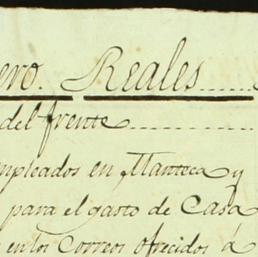 ero. Reales
del frente
mpleados en Manteca y
para el gasto de Casa
en los Correos ofrecidos á